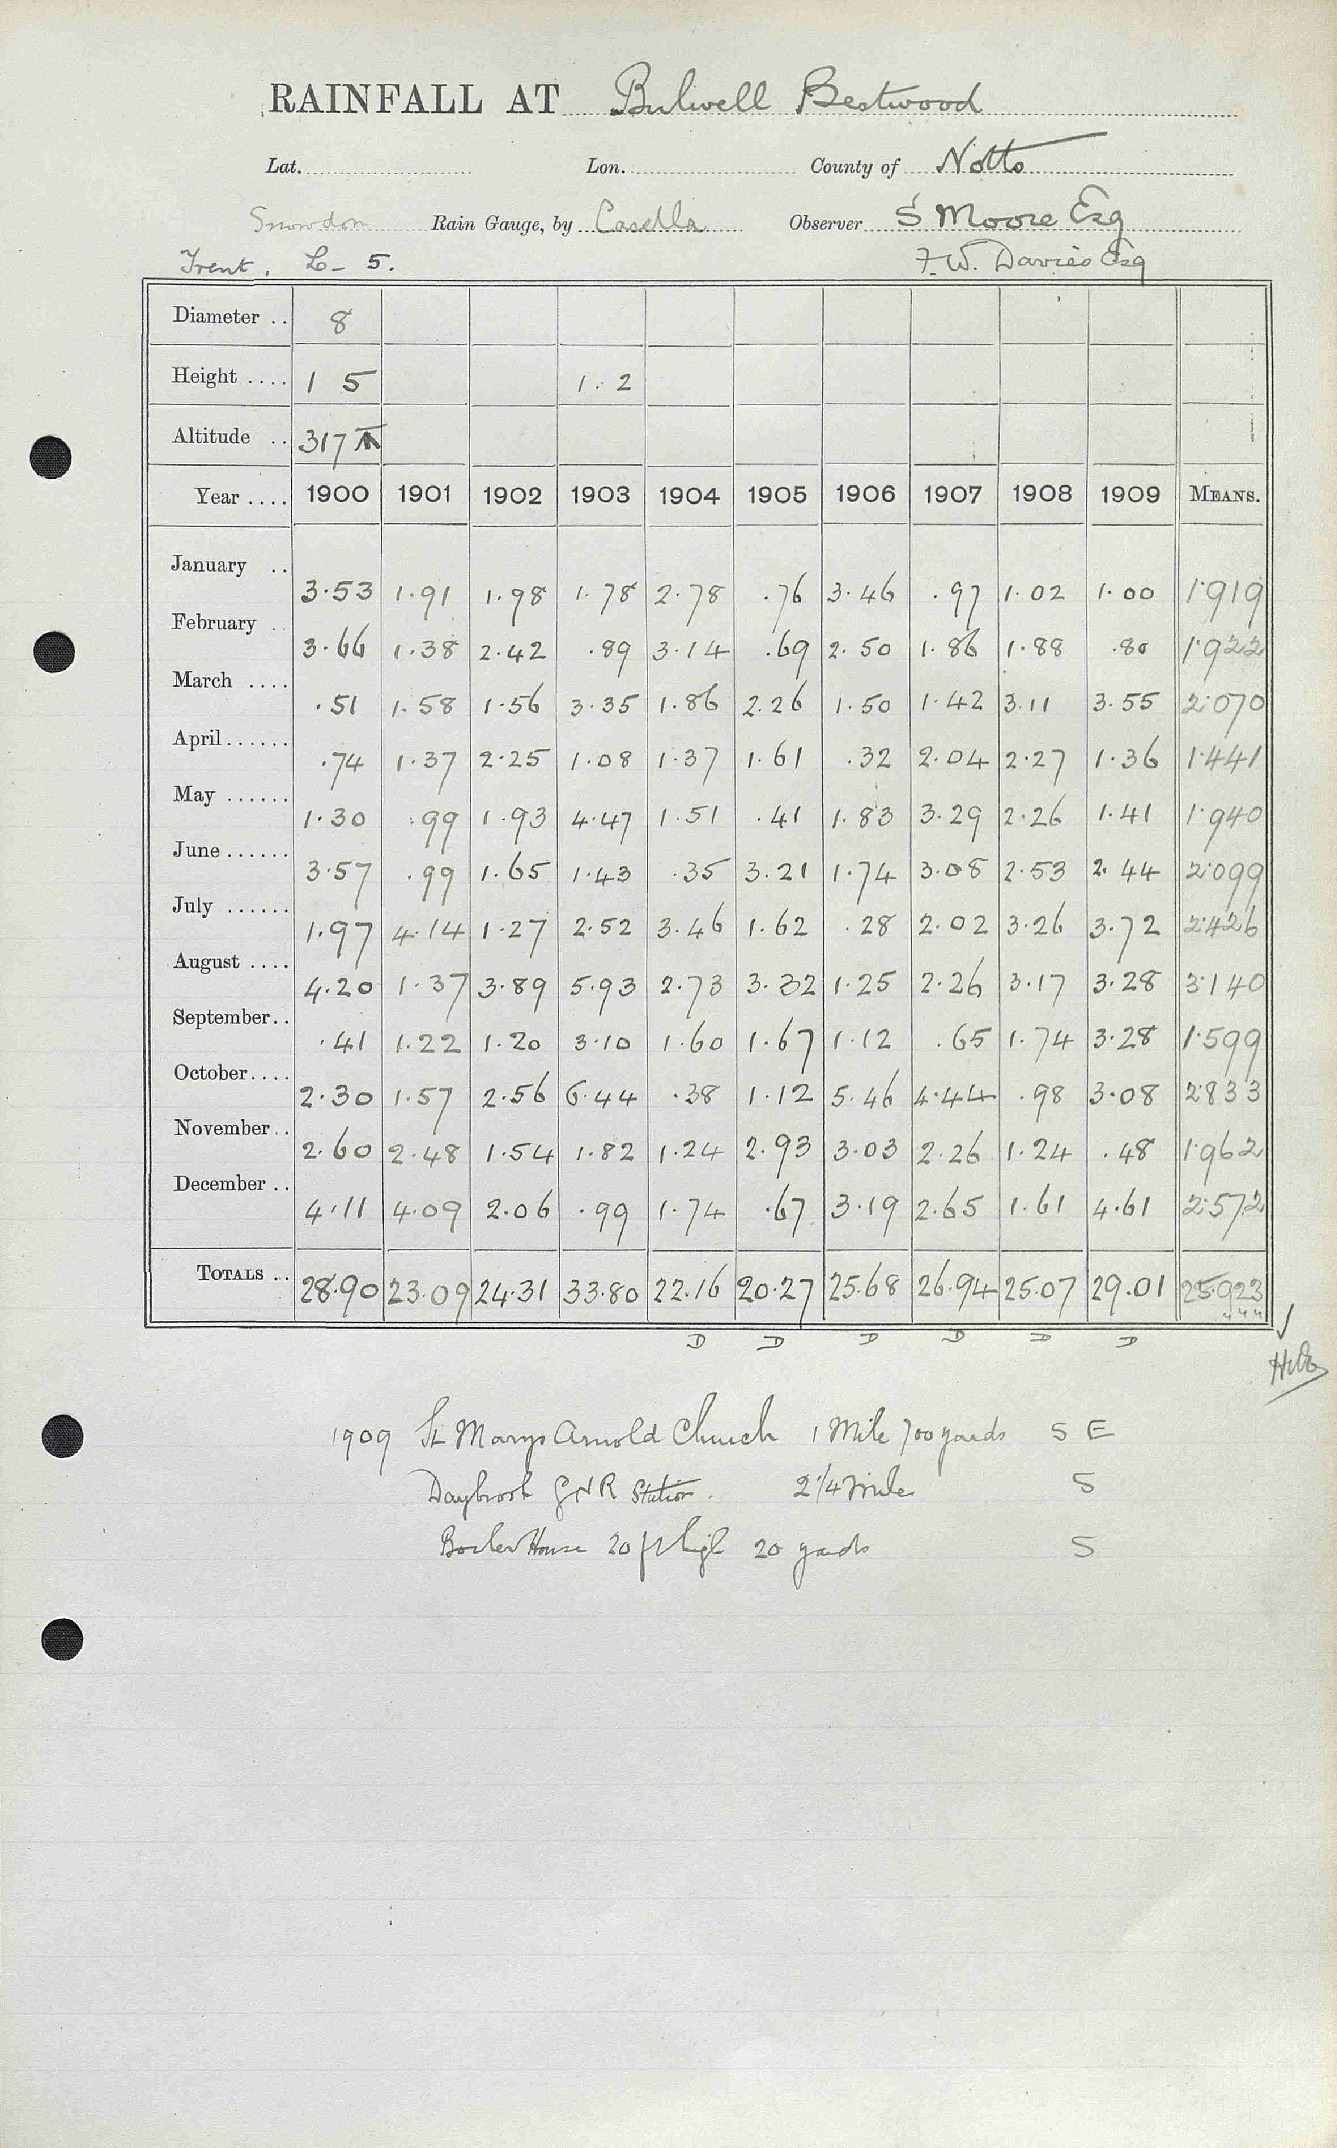 RAINFALL AT Bulwell Bestwood
Lat. Lon. County of Notts
Snowdon Rain Gauge, by Casella Observer S Moore Esq
Trent. L- 5. F. W. Davies Esq
Diameter .. 8
Height .... 1 5 1. 2
Altitude .. 317
Year .... 1900 1901 1902 1903 1904 1905 1906 1907 1908 1909 MEANS.
January .. 3.53 1.91 1.98 1.78 2.78 .76 3.46 .97 1.02 1.00 1.919
February .. 3.66 1.38 2.42 .89 3.14 .69 2.50 1.86 1.88 .80 1.922
March .... .51 1.58 1.56 3.35 1.86 2.26 1.50 1.42 3.11 3.55 2.070
April...... .74 1.37 2.25 1.08 1.37 1.61 .32 2.04 2.27 1.36 1.441
May ...... 1.30 .99 1.93 4.47 1.51 .41 1.83 3.29 2.26 1.41 1.940
June ...... 3.57 .99 1.65 1.43 .35 3.21 1.74 3.08 2.53 2.44 2.099
July ...... 1.97 4.14 1.27 2.52 3.46 1.62 .28 2.02 3.26 3.72 2.426
August .... 4.20 1.37 3.89 5.93 2.73 3.32 1.25 2.26 3.17 3.28 3.140
September.. .41 1.22 1.20 3.10 1.60 1.67 1.12 .65 1.74 3.28 1.599
October.... 2.30 1.57 2.56 6.44 .38 1.12 5.46 4.44 .98 3.08 2.833
November.. 2.60 2.48 1.54 1.82 1.24 2.93 3.03 2.26 1.24 .48 1.962
December .. 4.11 4.09 2.06 .99 1.74 .67 3.19 2.65 1.61 4.61 2.572
TOTALS .. 28.90 23.09 24.31 33.80 22.16 20.27 25.68 26.94 25.07 29.01 25.923
D D D D D D
1909 St Marys Arnold Church 1 Mile 700 yards S E
Daybrook GNR Station. 2 1/4 miles S
Boiler House 20 ft high 20 yards S